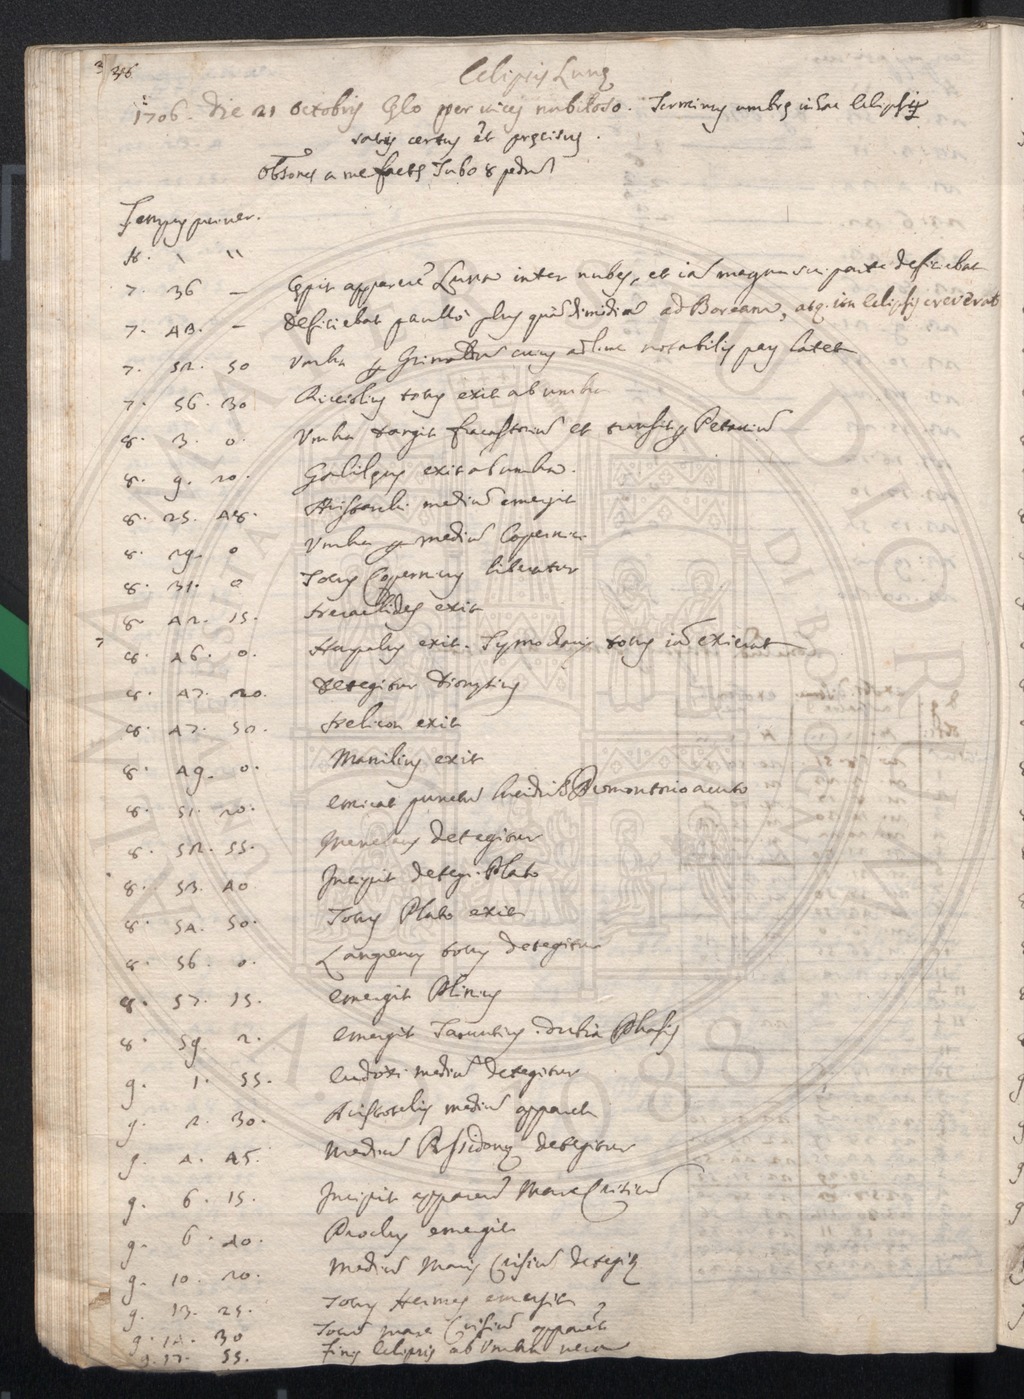 346
Eclipsis Lunę
1706. Die 21 Octobris Cęlo per vices nubiloso. Terminus umbrę in hac Eclipsi
satis certus et pręcisus.
Obsones a me factę Tubo 8 pedum
Tempus
H. ' "
7. 36 — Cępit apparere Luna inter nubes, et iam magna sui parte deficiebat
7. 43. — Deficiebat paullo plus quam dimidia ad Boream, atq. iam Eclipsis creverat
7. 52. 50 Umbra p Grimaldum cuius adhuc notabilis pars latet
7. 56. 30 Ricciolus totus exit ab umbra
8. 3. 0. Umbra tangit Fracastorium et transit p Petavium
8. 9. 20. Galilęus exit ab umbra.
8. 25. 48. Aristarchi medium emergit
8. 29. 0 Umbra p medium Copernici
8. 31. 0 Totus Copernicus liberatur
8. 42. 15. Heraclides exit
8. 46. 0. Harpalus exit. Tymocharis totus iam exierat
8. 47. 20. Detegitur Dionysius
8. 47. 50. Helicon exit
8. 49. 0. Manilius exit
8. 51. 20. Emicat punctum lucidum Promontorio acuto
8. 52. 55. Menelaus detegitur
8. 53. 40 Incipit detegi Plato
8. 54. 50. Totus Plato exit
8. 56. 0. Langrenus totus detegitur
8. 57. 15. Emergit Plinius
8. 59. 2. Emergit Taruntius. dubia Phasis
9. 1. 55. Eudoxi medium detegitur
9. 2. 30. Aristotelis medium apparet
9. 4. 45. Medium Possidonii detegitur
9. 6. 15. Incipit apparere Mare Crisium
9. 6. 40. Proclus emergit
9. 10. 20. Medium Maris Crisium detegitur
9. 13. 25. Totus Hermes emersit
9. 14. 30 Totum mare Crisium apparet
9. 17. 55. Finis Eclipsis ab Umbra vera
ALMA MATER STUDIORUM
UNIVERSITA DI BOLOGNA
A.D. 1088